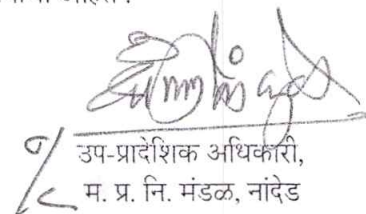 उप-प्रादेशिक अधिकारी,
म. प्र. नि. मंडळ, नांदेड